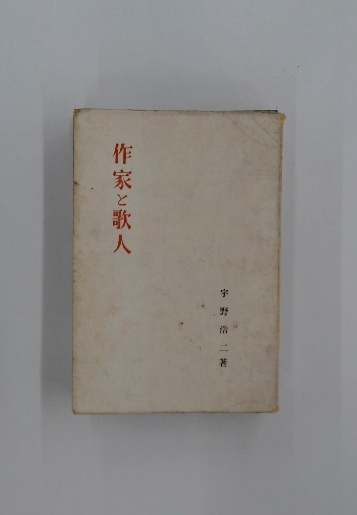 作家と歌人
宇野浩二著